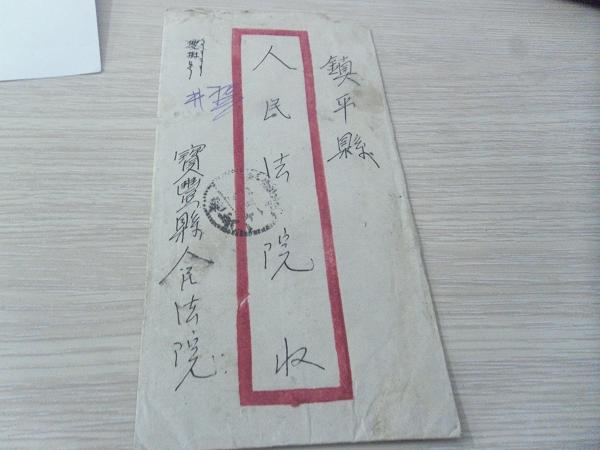 鎮平縣
人民法院收
寶豐縣人民法院